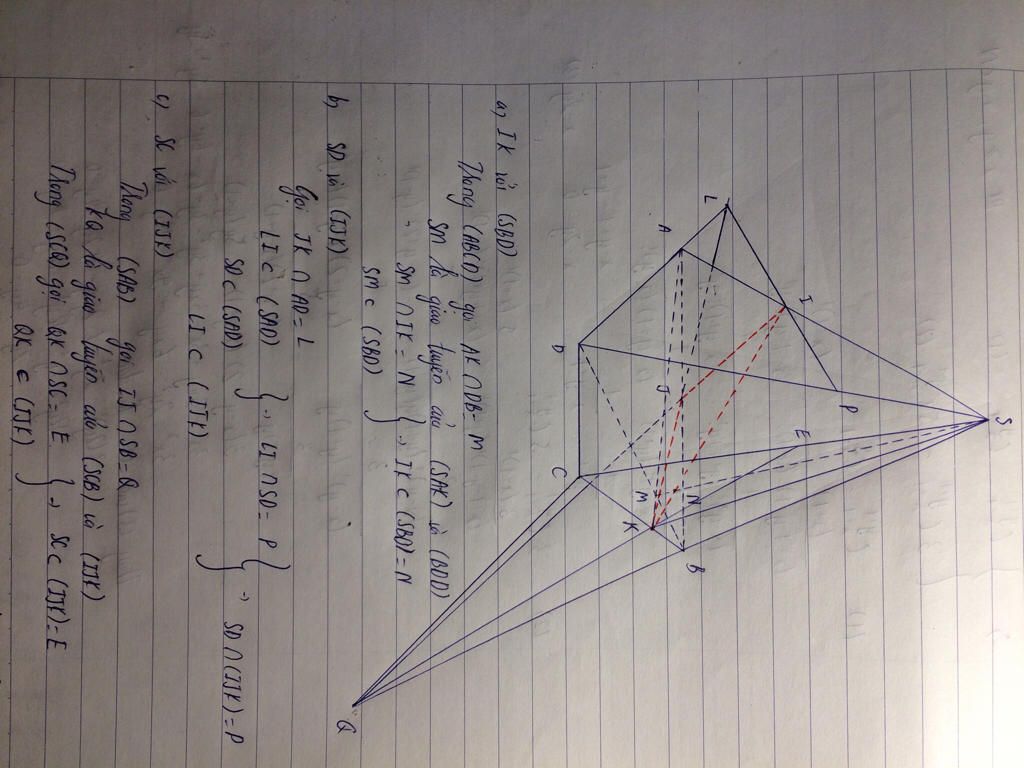 S
I
P
E
L
A
D
J
C
M
N
K
B
Q
a, IK và (SBD)
Trong (ABCD) gọi AK ∩ DB = M
SM là giao tuyến của (SAK) và (BDD)
→ SM ∩ IK = N } → IK ⊂ (SBD) = N
SM ⊂ (SBD)
b) SD và (IJK)
Gọi JK ∩ AD = L
LI ⊂ (SAD) } → LI ∩ SD = P } → SD ∩ (IJK) = P
SD ⊂ (SAD)
LI ⊂ (IJK)
c) SC với (IJK)
Trong (SAB) gọi IJ ∩ SB = Q
KQ là giao tuyến của (SCB) và (IJK)
Trong (SCQ) gọi QK ∩ SC = E } → SC (IJK) = E
QK ⊂ (IJK)